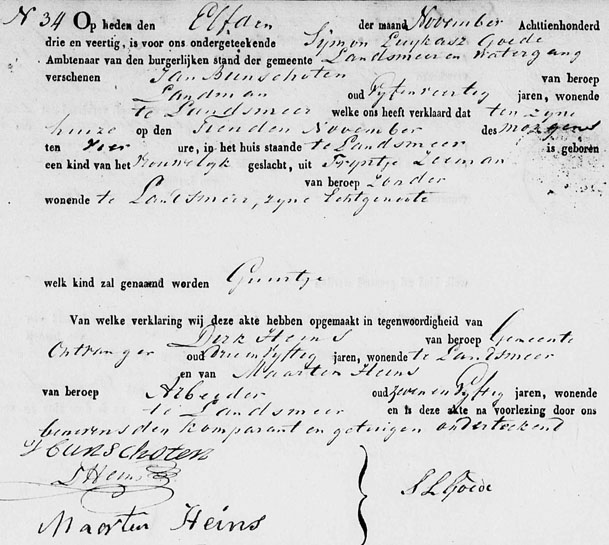 N 34 Op heden den Elfden der maand November Achttienhonderd
drie en veertig, is voor ons ondergeteekende Symon Luykasz Goede
Ambtenaar van den burgerlijken stand der gemeente Landsmeer en Watergang
verschenen Jan Bunschoten van beroep
Landman oud Vyfenveertig jaren, wonende
te Landsmeer welke ons heeft verklaard dat ten zyne
huize op den Tienden November des morgens
ten Vier ure, in het huis staande te Landsmeer is geboren
een kind van het Vrouwelyk geslacht, uit Tryntje Zeeman
van beroep Zonder
wonende te Landsmeer, zyne Echtgenoote
welk kind zal genaamd worden Guurtje
Van welke verklaring wij deze akte hebben opgemaakt in tegenwoordigheid van
Dirk Heins van beroep Gemeente
Ontvanger oud Drieenvyftig jaren, wonende te Landsmeer
en van Maarten Heins
van beroep Arbeyder oud zeven en Vyftig jaren, wonende
te Landsmeer en is deze akte na voorlezing door ons
benevens den komparant en getuigen onderteekend
Bunschoten
D Heins
S L Goede
Maarten Heins